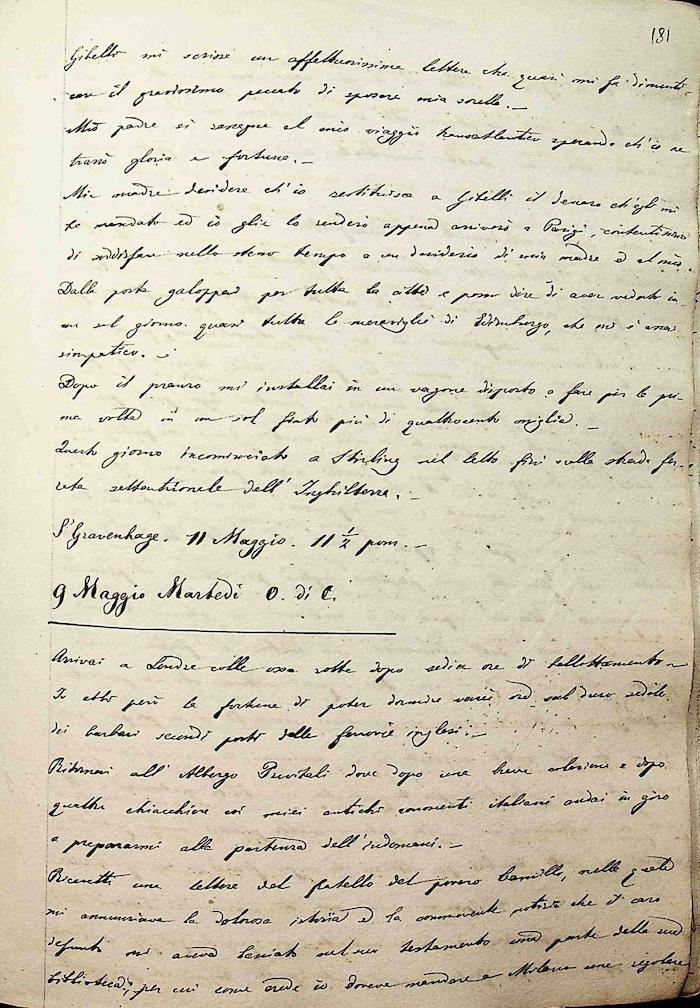 181
Gibelli mi scrive un affettuosissima lettera che quasi mi fa dimenti-
care il gravissimo peccato di sposare mia sorella. —
Mio padre si rassegna al mio viaggio transatlantico sperando ch'io ne
trarrò gloria e fortuna. —
Mia madre desidera ch'io restituisca a Gibelli il denaro ch'egli mi
ha mandato ed io glie lo renderò appena arriverò a Parigi, contentissimo
di soddisfare nello stesso tempo a un desiderio di mia madre e al mio.
Dalla posta galoppai per tutta la città e posso dire di aver veduto in
un sol giorno quasi tutte le meraviglie di Edimburgo, che mi è assai
simpatica. —
Dopo il pranzo mi installai in un vagone disposto a fare per la pri-
ma volta in un sol fiato più di quattrocento miglia. —
Questo giorno incominciato a Stirling nel letto finì sulla strada fer-
rata settentrionale dell'Inghilterra. —
S'Gravenhage. 11 Maggio. 11 ½ pom. —
9 Maggio Martedì O. di C.
Arrivai a Londra colle ossa rotte dopo sedici ore di ballottamento —
Io ebbi però la fortuna di poter dormire varie ore sul duro sedile
dei barbari secondi posti delle ferrovie inglesi. —
Ritornai all'Albergo Previtali dove dopo una breve colazione e dopo
quattro chiacchiere coi miei antichi conoscenti italiani andai in giro
a prepararmi alla partenza dell'indomani. —
Ricevetti una lettera dal fratello del povero Camillo, nella quale
mi annunziava la dolorosa istoria e la commovente notizia che il caro
defunto mi aveva lasciato nel suo testamento una parte della sua
biblioteca, per cui come erede io doveva mandare a Milano una regolare